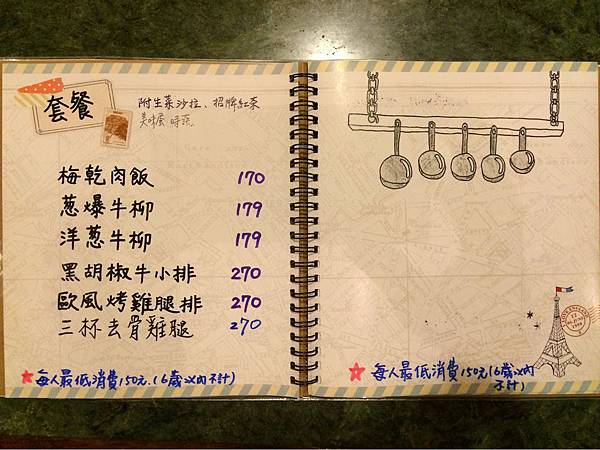 套餐
附生菜沙拉、招牌紅茶
梅乾肉飯 170
蔥爆牛柳 179
洋蔥牛柳 179
黑胡椒牛小排 270
歐風烤雞腿排 270
三杯去骨雞腿 270
★每人最低消費150元.(6歲以內不計)
★每人最低消費150元(6歲以內
不計)